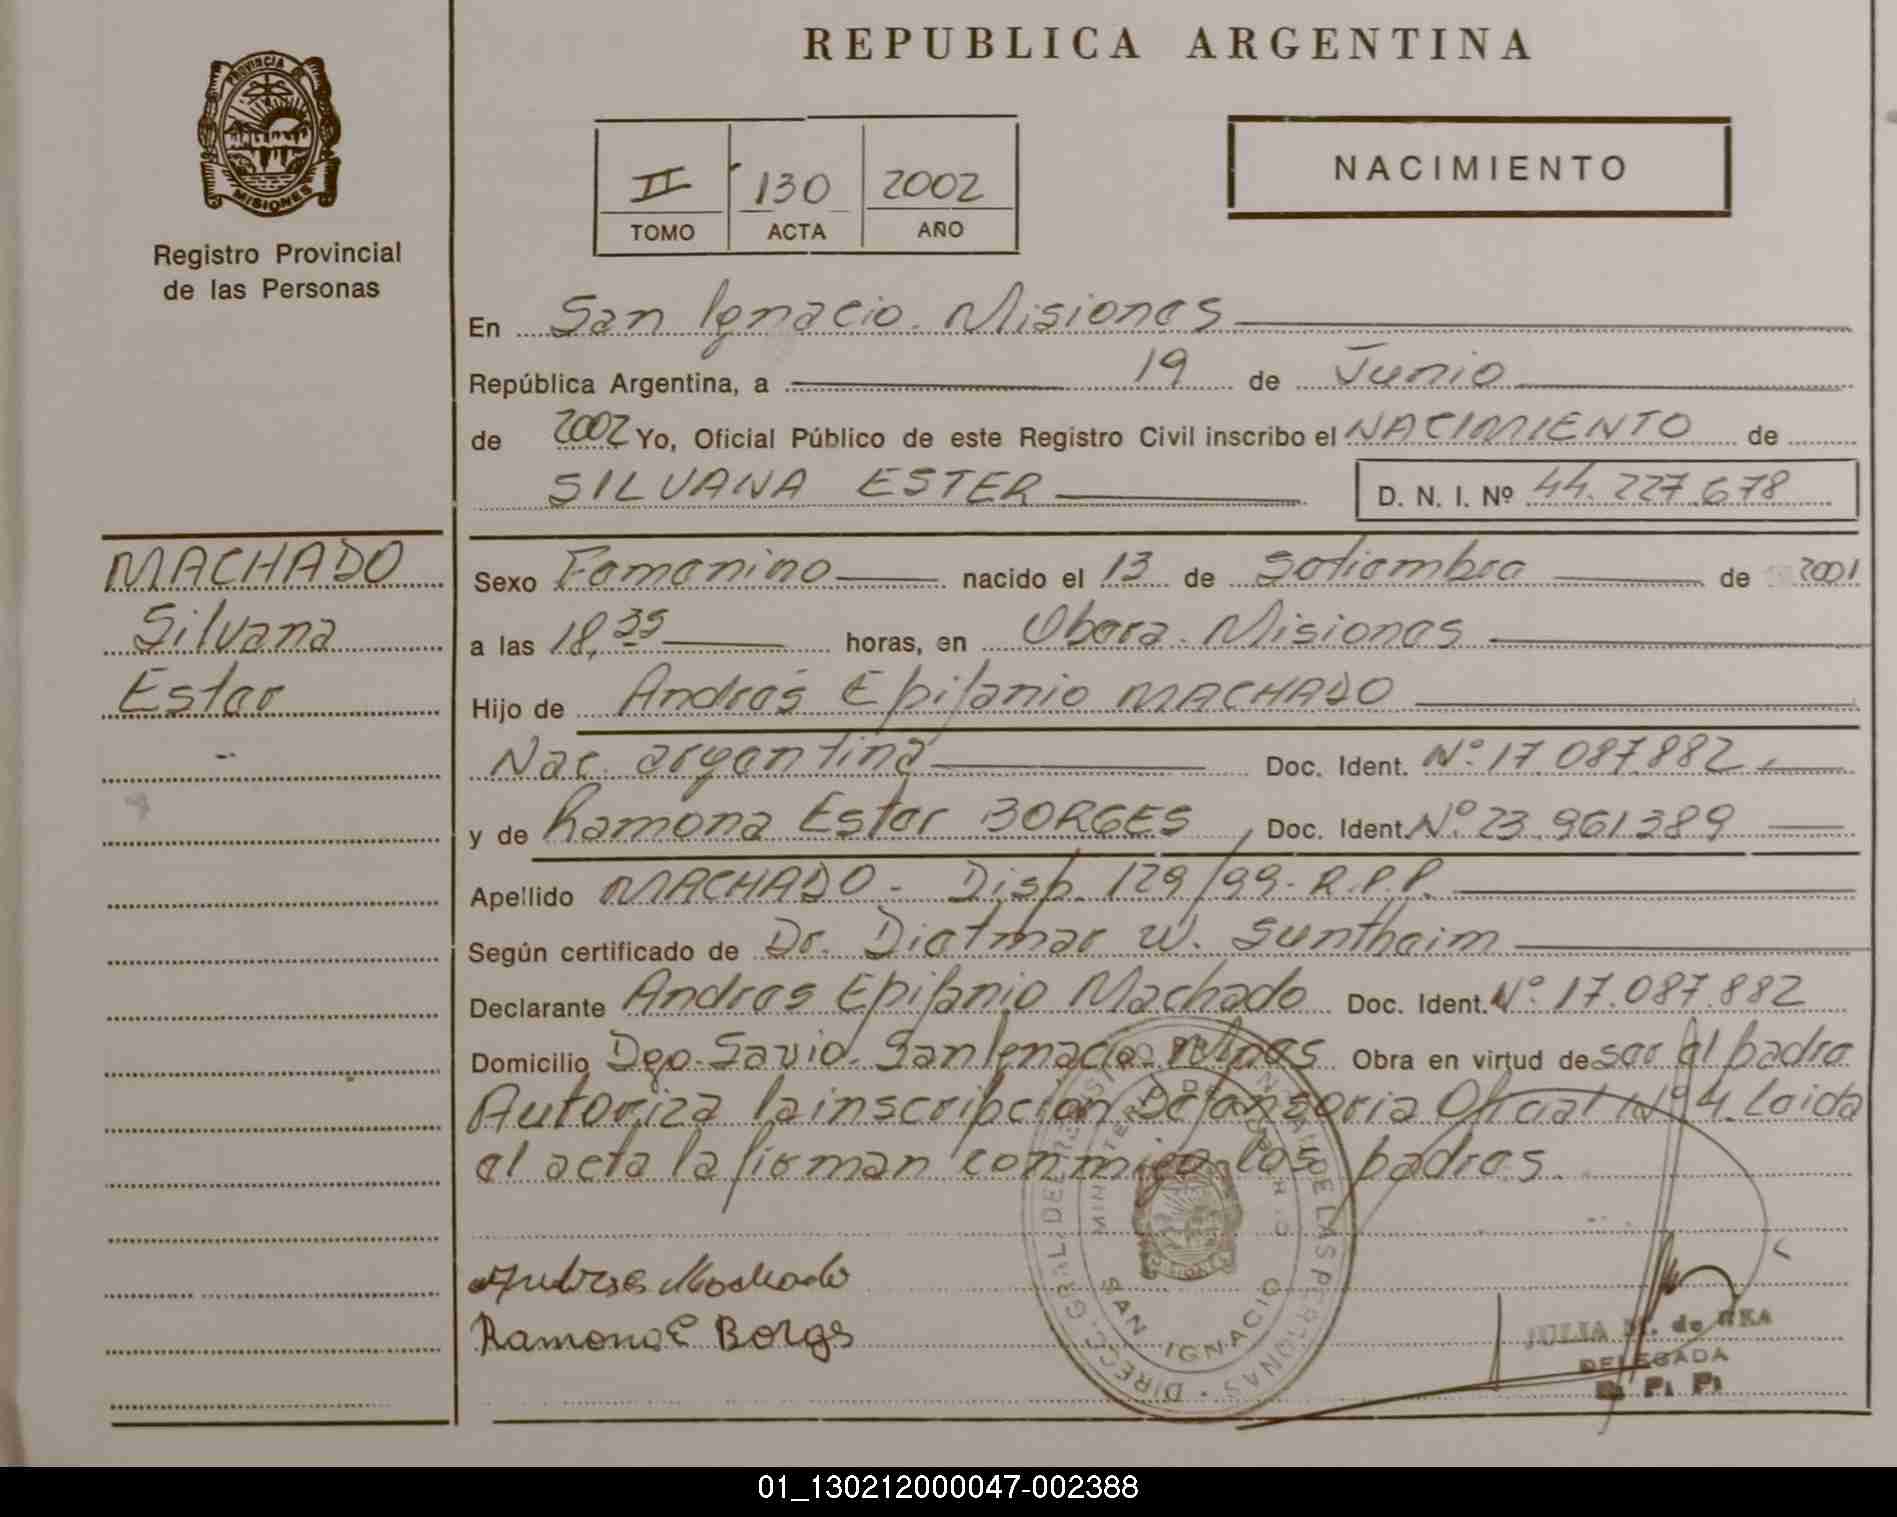 REPUBLICA ARGENTINA
PROVINCIA DE
MISIONES
Registro Provincial
de las Personas
II 130 2002
TOMO ACTA AÑO
NACIMIENTO
En San Ignacio. Misiones
República Argentina, a 19 de Junio
de 2002 Yo, Oficial Público de este Registro Civil inscribo el NACIMIENTO de
SILVANA ESTER D. N. I. Nº 44.227.678
MACHADO
Silvana
Ester
Sexo Femenino nacido el 13 de Setiembre de 2001
a las 18,35 horas, en Obera. Misiones
Hijo de Andrés Epifanio MACHADO
Nac. argentina Doc. Ident. Nº 17.087.882,
y de Ramona Ester BORGES, Doc. Ident. Nº 23.961.389
Apellido MACHADO - Disp. 129/99- R.P.P.
Según certificado de Dr. Dietmar W. Suntheim
Declarante Andres Epifanio Machado Doc. Ident. Nº 17.087.882
Domicilio Dgo. Savio. San Ignacio. Obra en virtud de ser el padre
Autoriza la inscripción Defensoria Oficial Nº 4. Leida
el acta la firman conmigo los padres.
Andres Machado
Ramona E Borges
SAN IGNACIO
JULIA M. de
DELEGADA
R. P. P.
01_130212000047-002388